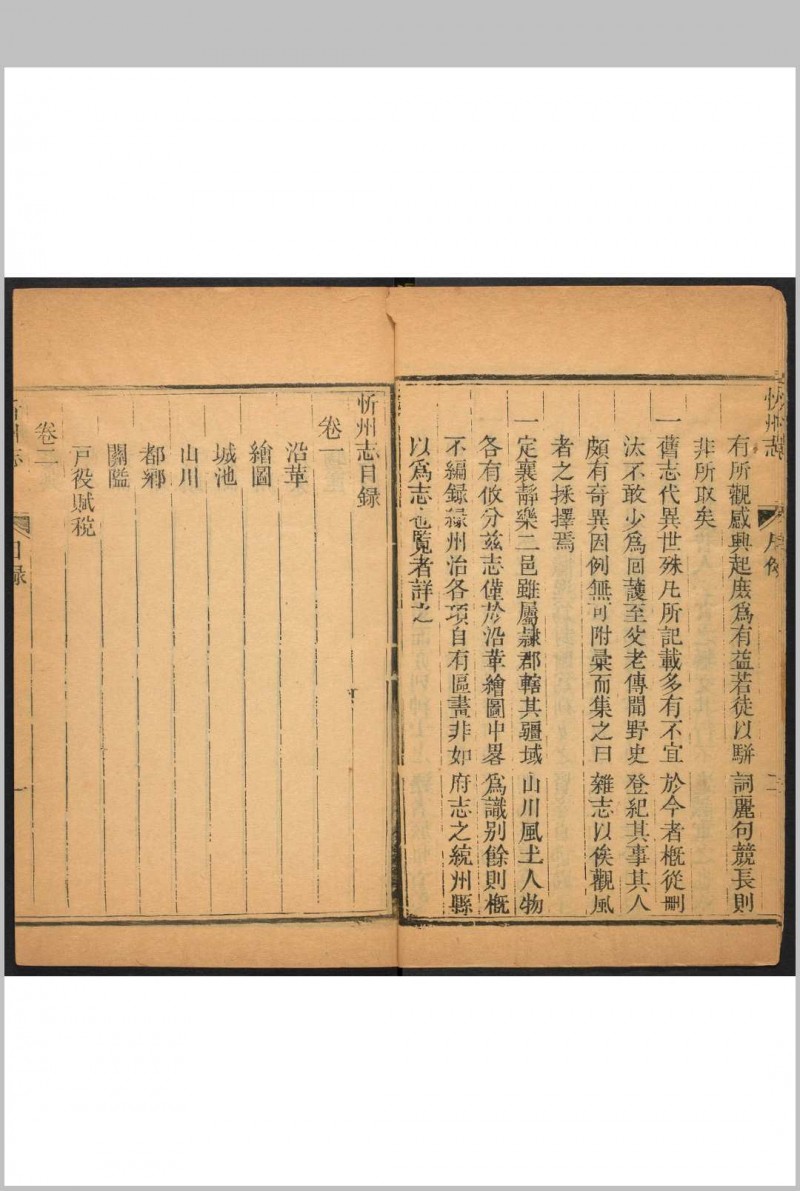 忻州志
二
有所觀感興起庶爲有益若徒以駢詞麗句競長則
非所取矣
一舊志代異世殊凡所記載多有不宜於今者槪從刪
汰不敢少爲回護至父老傳聞野史登紀其事其人
頗有奇異因例無可附彙而集之曰雜志以俟觀風
者之採擇焉
一定襄靜樂二邑雖屬隷郡轄其疆域山川風土人物
各有攸分兹志僅於沿革繪圖中畧爲識别餘則槪
不編録縁州治各項自有區畫非如府志之統州縣
以爲志也覧者詳之
忻州志目録
卷一
沿革
繪圖
城池
山川
都鄉
關隘
戸役賦稅
卷二
州志
目録
一